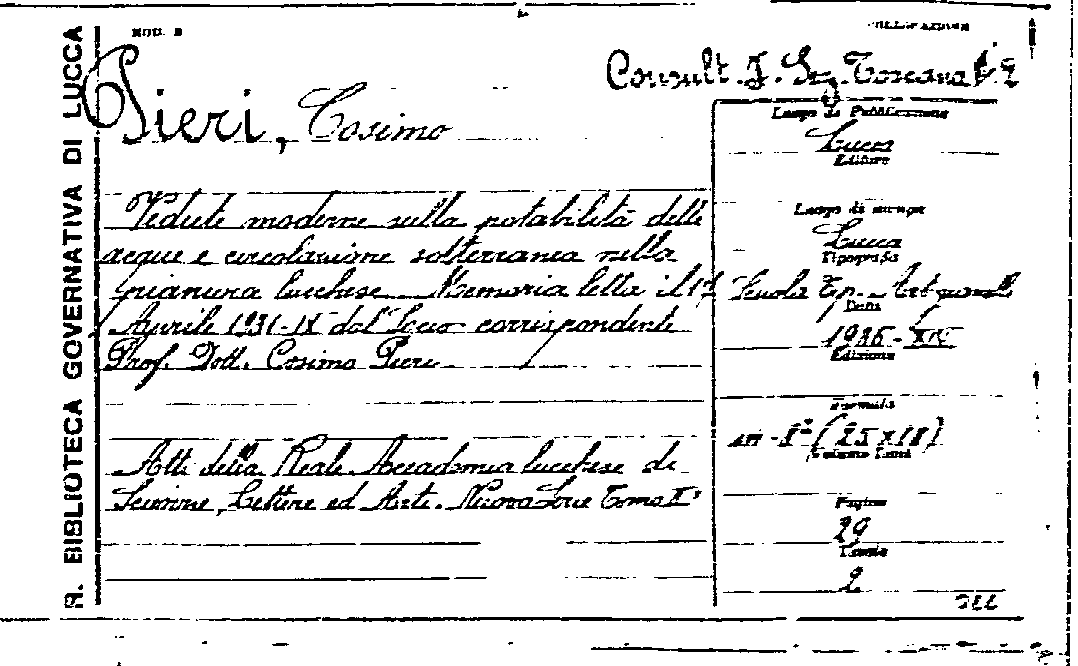 R. BIBLIOTECA GOVERNATIVA DI LUCCA
MOD. B
COLLOCAZIONE
Consult. J. Sez. Toscana
Pieri, Cosimo
Vedute moderne sulla potabilità delle
acque e circolazione sotterranea nella
pianura lucchese Memoria letta il 17
Aprile 1931-IX dal Socio corrispondente
Prof. Dott. Cosimo Pieri
Atti della Reale Accademia lucchese di
Scienze, Lettere ed Arti. Nuova Serie Tomo
Luogo di Pubblicazione
Lucca
Editore
Luogo di stampa
Lucca
Tipografia
Scuola Tip.
Data
1936-XIV
Edizione
Formato
in-8° (25x18)
Volume Tomi
Pagine
29
Tavole
2